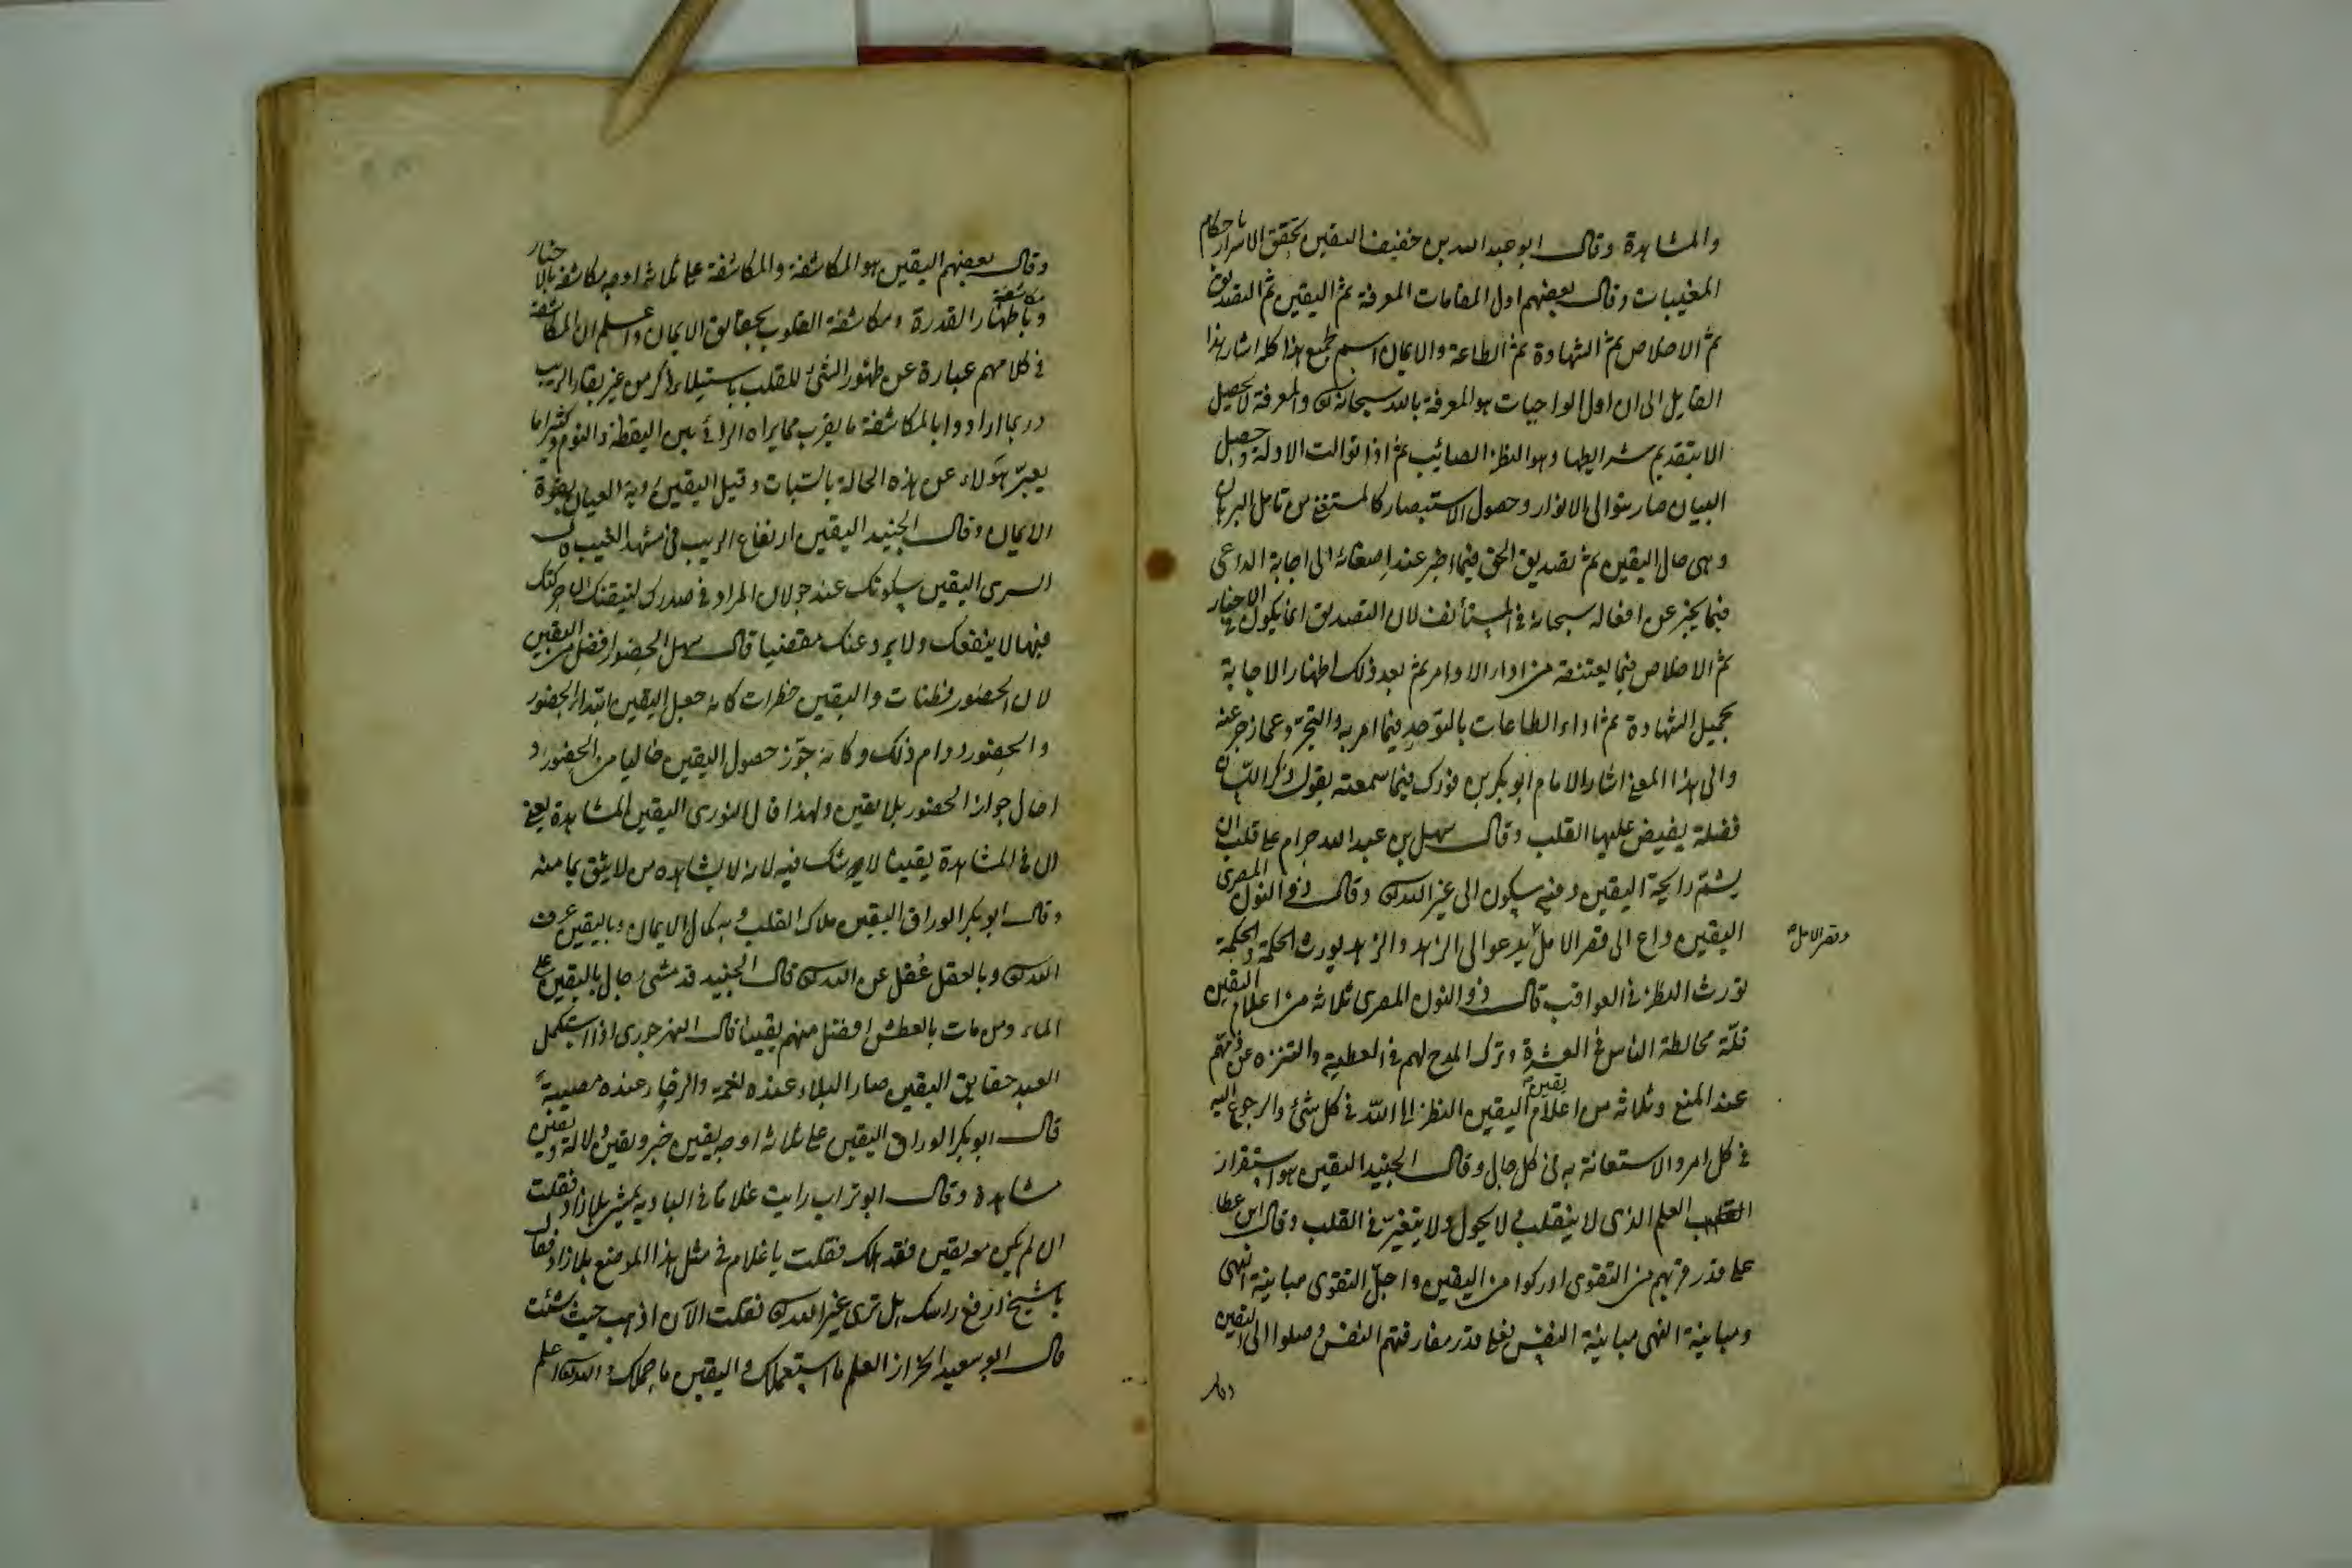 والمشاهدة وقال ابو عبد الله بن خفيف اليقين تحقق الاسرار باحكام
المغيبات وقال بعضهم اول المقامات المعرفة ثم اليقين ثم التصديق
ثم الاخلاص ثم الشهادة ثم الطاعة والايمان اسم لجميع هذا كله اشار هذا
القايل الى ان اول الواجبات هو المعرفة بالله سبحانه والمعرفة لا تحصيل
الا بتقديم شرايطها وهو النظر الصائب ثم اذا توالت الادلة وحصل
البيان صار بتوالى الانوار وحصول الاستبصار كالمستغنى من تامل البرهان
وهى حال اليقين ثم تصديق الحق فيما اخبر عند اصغائه الى اجابة الداعى
فيما يخبر عن افعاله سبحانه فى المستأنف لان التصديق انما يكون فى الاخبار
ثم الاخلاص فيما يعتنقه من اداء الاوامر ثم بعد ذلك اظهار الاجابة
بجميل الشهادة ثم اداء الطاعات بالتوحد فيما امر به والتجرد عما زجر عنه
والى هذا المعنى اشار الامام ابو بكر بن فورك فيما سمعته يقول ذكر اللسان
فضلة يفيض عليها القلب وقال سهل بن عبد الله حرام على قلب ان
يشم رايحة اليقين وفيه سكون الى غير الله وقال ذو النون المصرى
اليقين داع الى قصر الامل يدعو الى الزهد والزهد يورث الحكمة والحكمة
وقصر الامل
تورث النظر فى العواقب قال ذو النون المصرى ثلاثة من اعلام اليقين
قلة مخالطة الناس فى العشرة وترك المدح لهم فى العطية والتنزه عن ذمهم
عند المنع وثلاثة من اعلام يقين اليقين النظر الى الله فى كل شئ والرجوع اليه
فى كل امر والاستعانة به فى كل حال وقال الجنيد اليقين هو استقرار
العلم الذى لا ينقلب ولا يحول ولا يتغير فى القلب وقال ابن عطا
على قدر قربهم من التقوى ادركوا من اليقين واصل التقوى مباينة النهى
ومباينة النهى مباينة النفس فعلى قدر مفارقتهم النفس وصلوا الى اليقين
وقال
وقال بعضهم اليقين هو المكاشفة والمكاشفة على ثلاثة اوجه مكاشفة بالاخبار
ومكاشفة باظهار القدرة ومكاشفة القلوب بحقايق الايمان واعلم ان المكاشفة
فى كلامهم عبارة عن ظهور الشئ للقلب باستيلاء ذكره من غير بقاء الريب
وربما ارادوا بالمكاشفة ما يقرب مما يراه الرائى بين اليقظة والنوم وكثيرا ما
يعبر هؤلاء عن هذه الحالة بالثبات وقيل اليقين رؤية العيان بقوة
الايمان وقال الجنيد اليقين ارتفاع الريب فى مشهد الغيب وقال
السرى اليقين سكونك عند جولان الموارد فى صدرك لتيقنك ان حركتك
فيها لا ينفعك ولا يرد عنك مقضيا قال سهل الحضور افضل من اليقين
لان الحضور وطنات واليقين خطرات كانه جعل اليقين ابتداء الحضور
والحضور دوام ذلك وكانه جوز حصول اليقين خاليا من الحضور و
احال جواز الحضور بلا يقين ولهذا قال النورى اليقين المشاهدة يعنى
ان فى المشاهدة يقينا لا شك فيه لانه لا يشاهده من لا يثق بما منه
وقال ابو بكر الوراق اليقين ملاك القلب وبه كمال الايمان وباليقين عرف
الله وبالعقل عقل عن الله قال الجنيد قد مشى رجال باليقين على
الماء ومن مات بالعطش افضل منهم يقينا قال النهرجورى اذا استكمل
العبد حقايق اليقين صار البلاء عنده نعمة والرخاء عنده مصيبة
قال ابو بكر الوراق اليقين على ثلاثة اوجه يقين خبر ويقين دلالة ويقين
مشاهدة وقال ابو تراب رايت غلاما فى البادية يمشى بلا زاد فقلت
ان لم يكن معه يقين فقد هلك فقلت يا غلام فى مثل هذا الموضع بلا زاد فقال
يا شيخ ارفع راسك هل ترى غير الله فقلت الآن اذهب حيث شئت
قال ابو سعيد الخراز العلم ما استعملك واليقين ما حملك والله اعلم